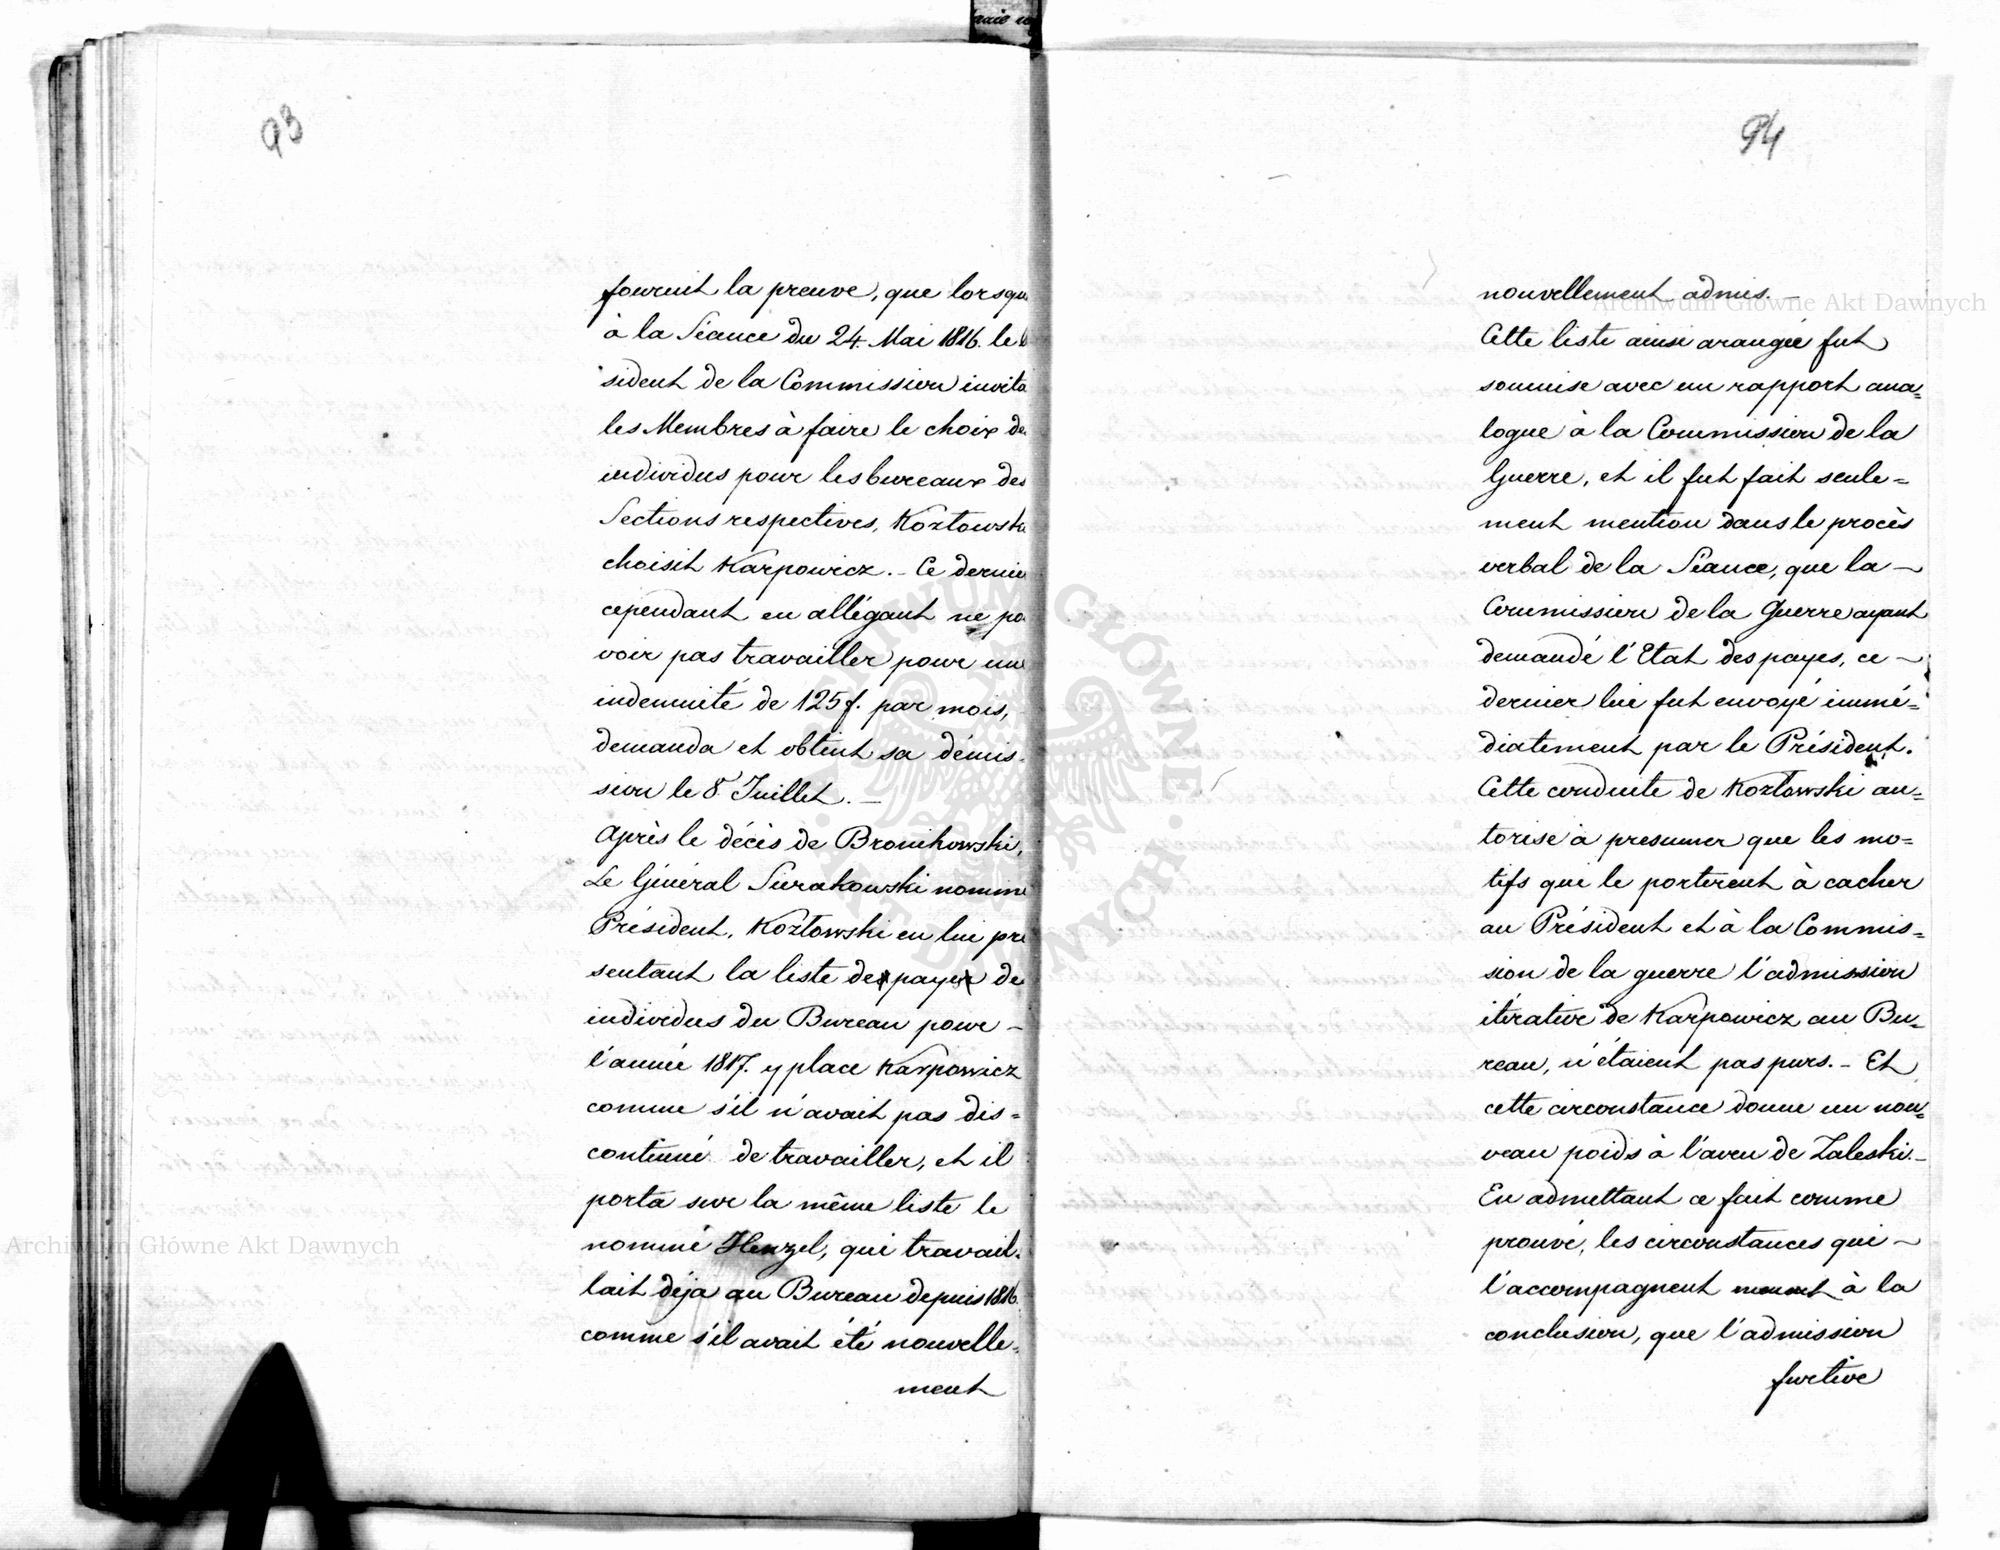 93
fournit la preuve, que lorsqu
à la Séance du 24. Mai 1816. le
sident de la Commission invita
les Membres à faire le choix de
individus pour les bureaux des
Sections respectives, Kozłowsk
choisit Karpowicz. - Ce dernie
cependant en allégant ne po
voir pas travailler pour un
indemnité de 125 f. par mois,
demanda et obtint sa démis-
sion le 8 Juillet. -
Après le décès de Bronikowski,
Le Général Sierakowski nomme
Président, Kozłowski en lui pré
sentant la liste de paye de
individus du Bureau pour -
l'année 1817. y place Karpowicz
comme s'il n'avait pas dis=
continué de travailler, et il
porta sur la même liste le
nommé Henzel, qui travail-
lait déja au Bureau depuis 1816.
comme s'il avait été nouvelle=
ment
94
nouvellement admis. -
Cette liste ainsi arangée fut
soumise avec un rapport ana=
logue à la Commission de la
Guerre, et il fut fait seule=
ment mention dans le procès
verbal de la Séance, que la -
Commission de la Guerre ayant
demandé l'Etat des payes, ce -
dernier lui fut envoyé immé=
diatement par le Président.
Cette conduite de Kozłowski au=
torise à presumer que les mo=
tifs qui le porterent à cacher
au Président et à la Commis=
sion de la guerre l'admission
itérative de Karpowicz au Bu=
reau, n'étaient pas purs. - Et
cette circonstance donne un nou=
veau poids à l'aveu de Zaleski. -
En admettant ce fait comme
prouvé, les circonstances qui -
l'accompagnent menent à la
conclusion, que l'admission
furtive
Archiwum Główne Akt Dawnych
Archiwum Główne Akt Dawnych
ARCHIWUM GŁÓWNE AKT DAWNYCH